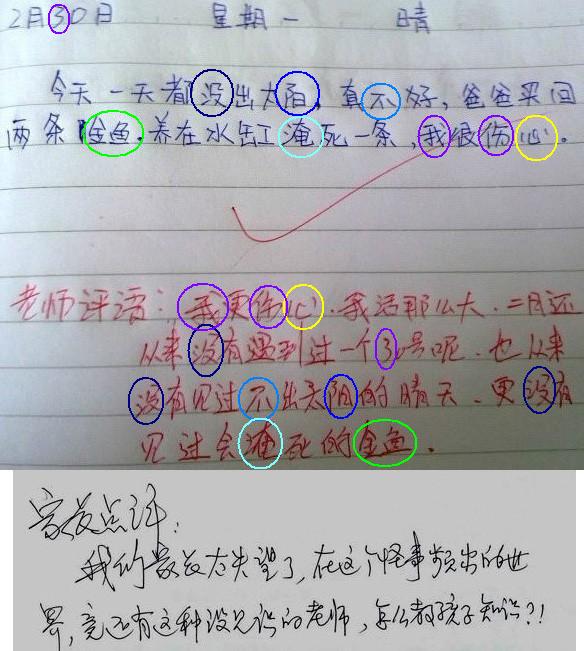 2月30日 星期一 晴
今天一天都没出太阳，真不好，爸爸买回
两条金鱼.养在水缸淹死一条，我很伤心。
老师评语：我更伤心.我活那么大.二月还
从来没有遇到过一个30号呢.也从来
没有见过不出太阳的晴天.更没有
见过会淹死的金鱼.
家长点评：
我们家长太失望了,在这个怪事频出的世
界,竟还有这种没见识的老师,怎么教孩子知识?!